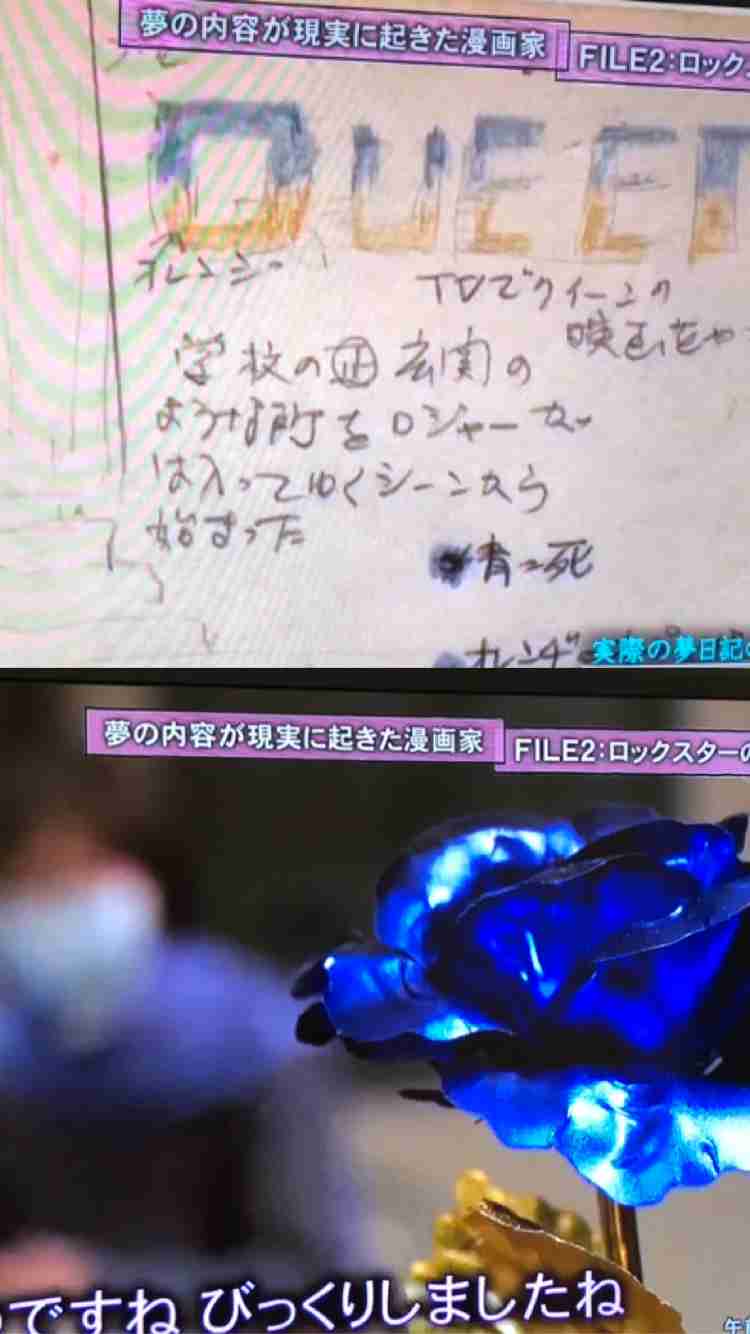 夢の内容が現実に起きた漫画家
FILE2:ロック
QUEE
オレンジ
TVでクイーンの
映画をや
学校の正玄関の
ような所をロジャーが
は入ってゆくシーンから
始まった
青=死
オレンジ=
実際の夢日記の
夢の内容が現実に起きた漫画家
FILE2:ロックスターの
ですね びっくりしましたね